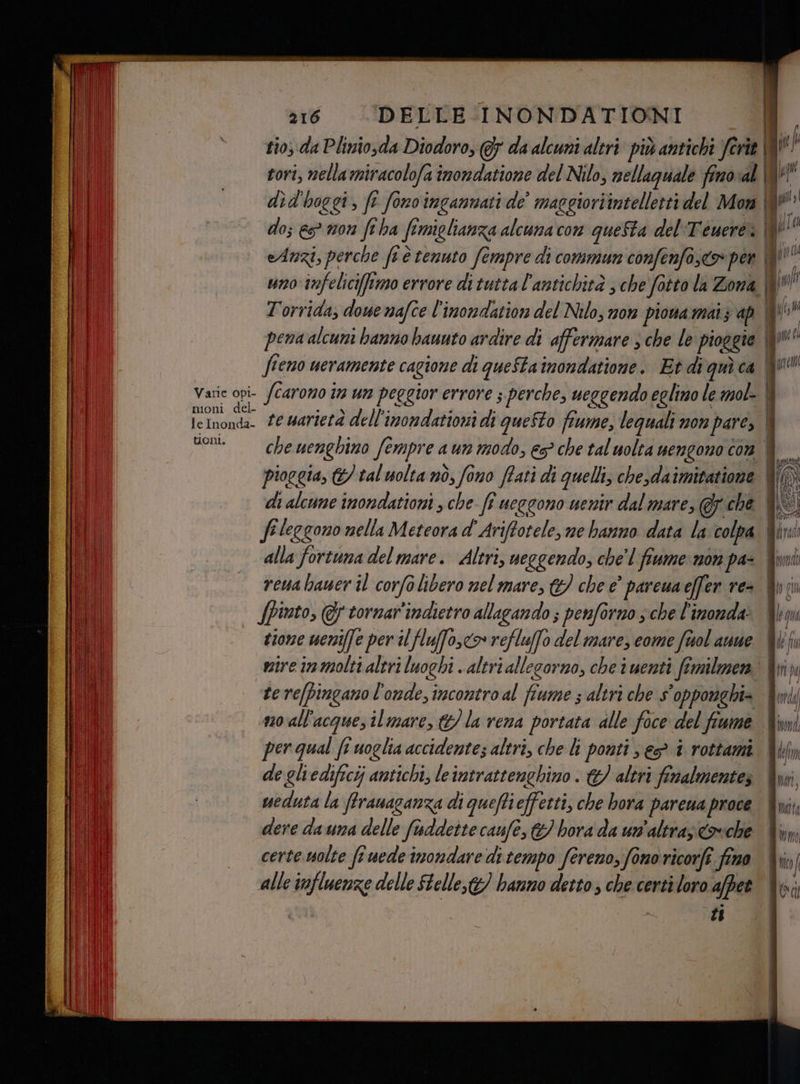 216 DELLE INONDATIONI
tio, da Plinio, da Diodoro, & da alcuni altri più antichi ſcrit
tori, nella miracoloſa inondatione del Nilo, nellaquale fino al
dì d'hoggi, ſi ſono ingannati de' maggiori intelletti del Mon
do; & non ſi ha ſimiglianza alcuna con queſta del Teuere.
Anzi, perche ſi è tenuto ſempre di commun conſenſo, & per
uno infeliciſſimo errore di tutta l'antichità, che ſotto la Zona
Torrida, doue naſce l'inondation del Nilo, non pioua mai; ap
pena alcuni hanno hauuto ardire di affermare, che le pioggie
ſieno ueramente cagione di queſta inondatione. Et di quì ca
ſcarono in un peggior errore; perche, ueggendo eglino le mol-
te uarietà dell'inondationi di queſto fiume, lequali non pare,
che uenghino ſempre a un modo, & che tal uolta uengono con
pioggia, & tal uolta nò, ſono ſtati di quelli, che, da imitatione
di alcune inondationi, che ſi ueggono uenir dal mare, & che
ſi leggono nella Meteora d'Ariſtotele, ne hanno data la colpa
alla fortuna del mare. Altri, ueggendo, che'l fiume non pa-
reua hauer il corſo libero nel mare, & che e' pareua eſſer re-
ſpinto, & tornar'indietro allagando; penſorno, che l'inonda-
tione ueniſſe per il fluſſo, & refluſſo del mare, come ſuol auue
nire in molti altri luoghi. altri allegorno, che i uenti ſimilmen
te reſpingano l'onde, incontro al fiume; altri che s'opponghi-
no all'acque, il mare, & la rena portata alle foce del fiume
per qual ſi uoglia accidente; altri, che li ponti, & i rottami
de gli edificij antichi, le intrattenghino. & altri finalmente,
ueduta la ſtrauaganza di queſti effetti, che hora pareua proce
dere da una delle ſuddette cauſe, & hora da un'altra, & che
certe uolte ſi uede inondare di tempo ſereno, ſono ricorſi fino
alle influenze delle Stelle, & hanno detto, che certi loro aſpet
ti
Varie opi-
nioni del-
le Inonda-
tioni.